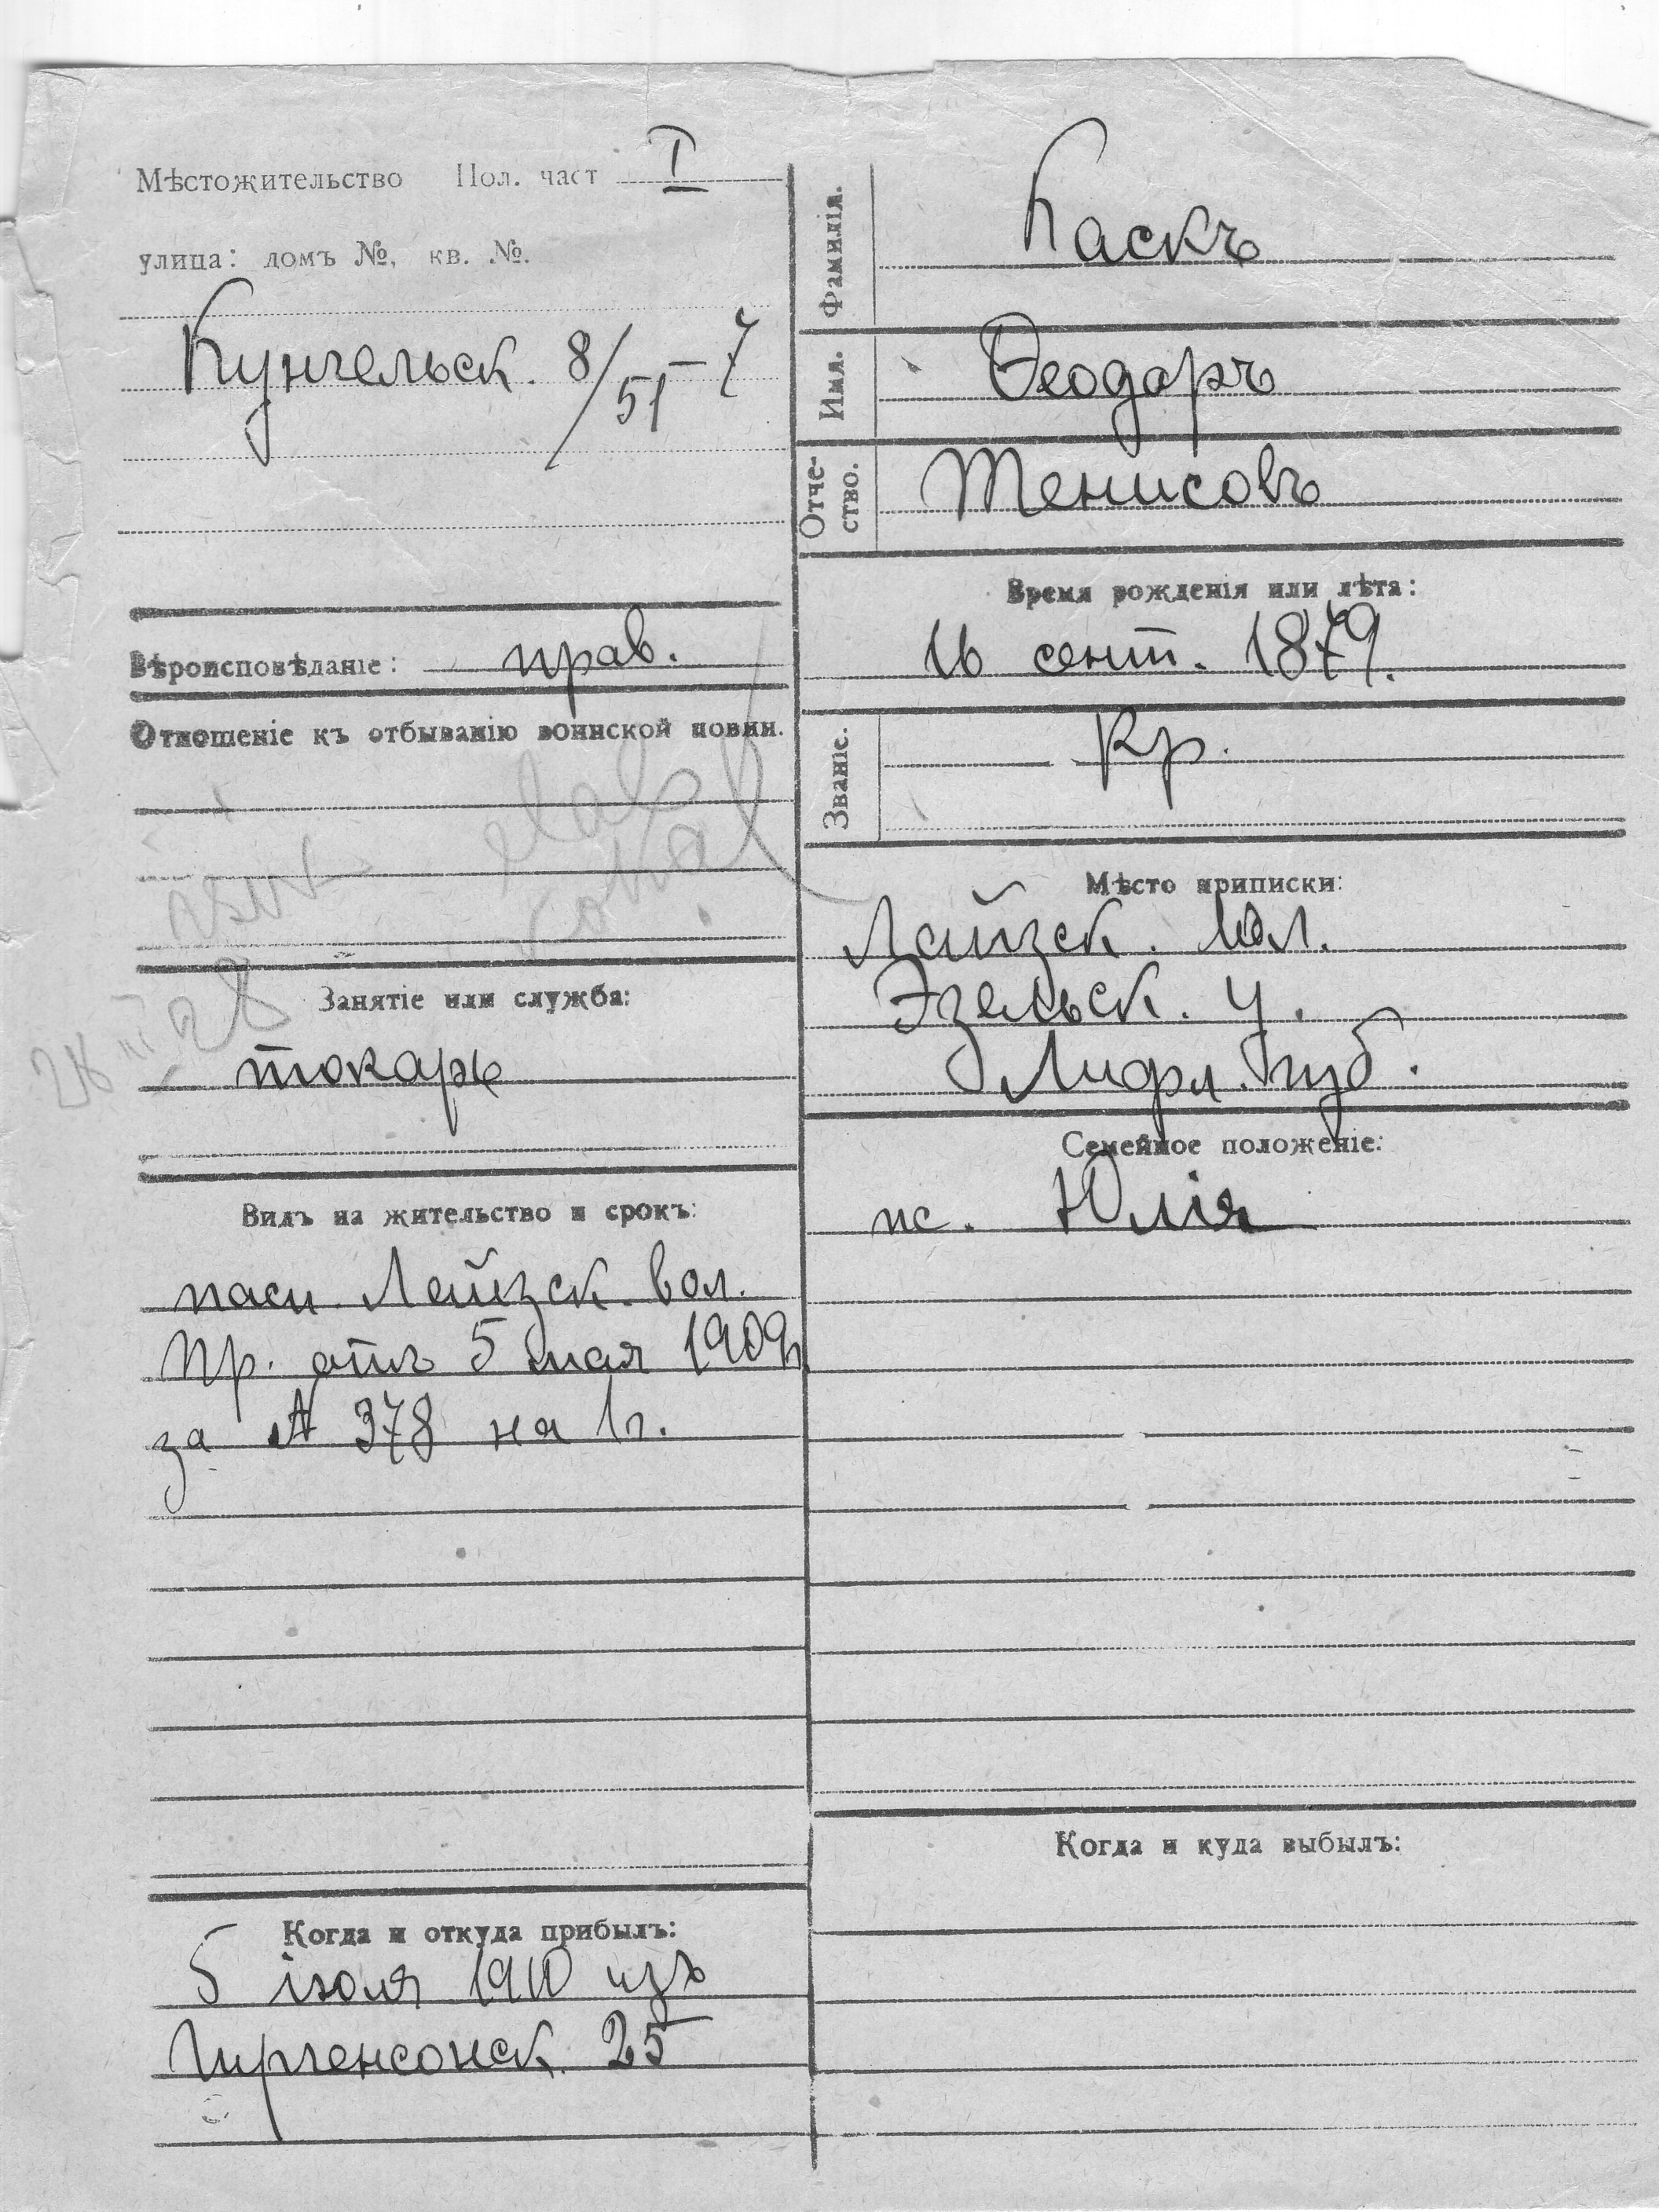 Мѣстожительство Пол. част I
улица: домъ №, кв. №.
Кунгельск. 8/51 – 7
Вѣроисповѣданіе: прав.
Отношеніе къ отбыванію воинской повин.
Занятіе или служба:
токарь
Видъ на жительство и срокъ:
пасп. Лейзск. вол.
пр. отъ 5 мая 1909
за № 378 на 1 г.
Когда и откуда прибылъ:
5 іюля 1910 изъ
25
Фамилія. Каскъ
Имя. Ѳеодоръ
Отче-
ство. Тенисовъ
Время рожденія или лѣта:
16 сент. 1879.
Званіе. Кр.
Мѣсто приписки:
Лейзск. вол.
Эзельск. у.
Лифл. губ.
Семейное положеніе:
Юлія
Когда и куда выбылъ: